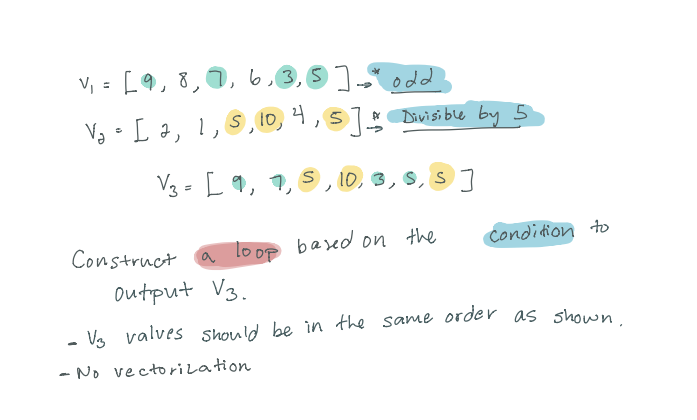 V₁ = [ 9, 8, 7, 6, 3, 5 ] → * odd
V₂ = [ 2, 1, 5, 10, 4, 5 ] → * Divisible by 5
V₃ = [ 9, 7, 5, 10, 3, 5, 5 ]
Construct a loop based on the condition to
output V₃.
- V₃ values should be in the same order as shown.
- No vectorization